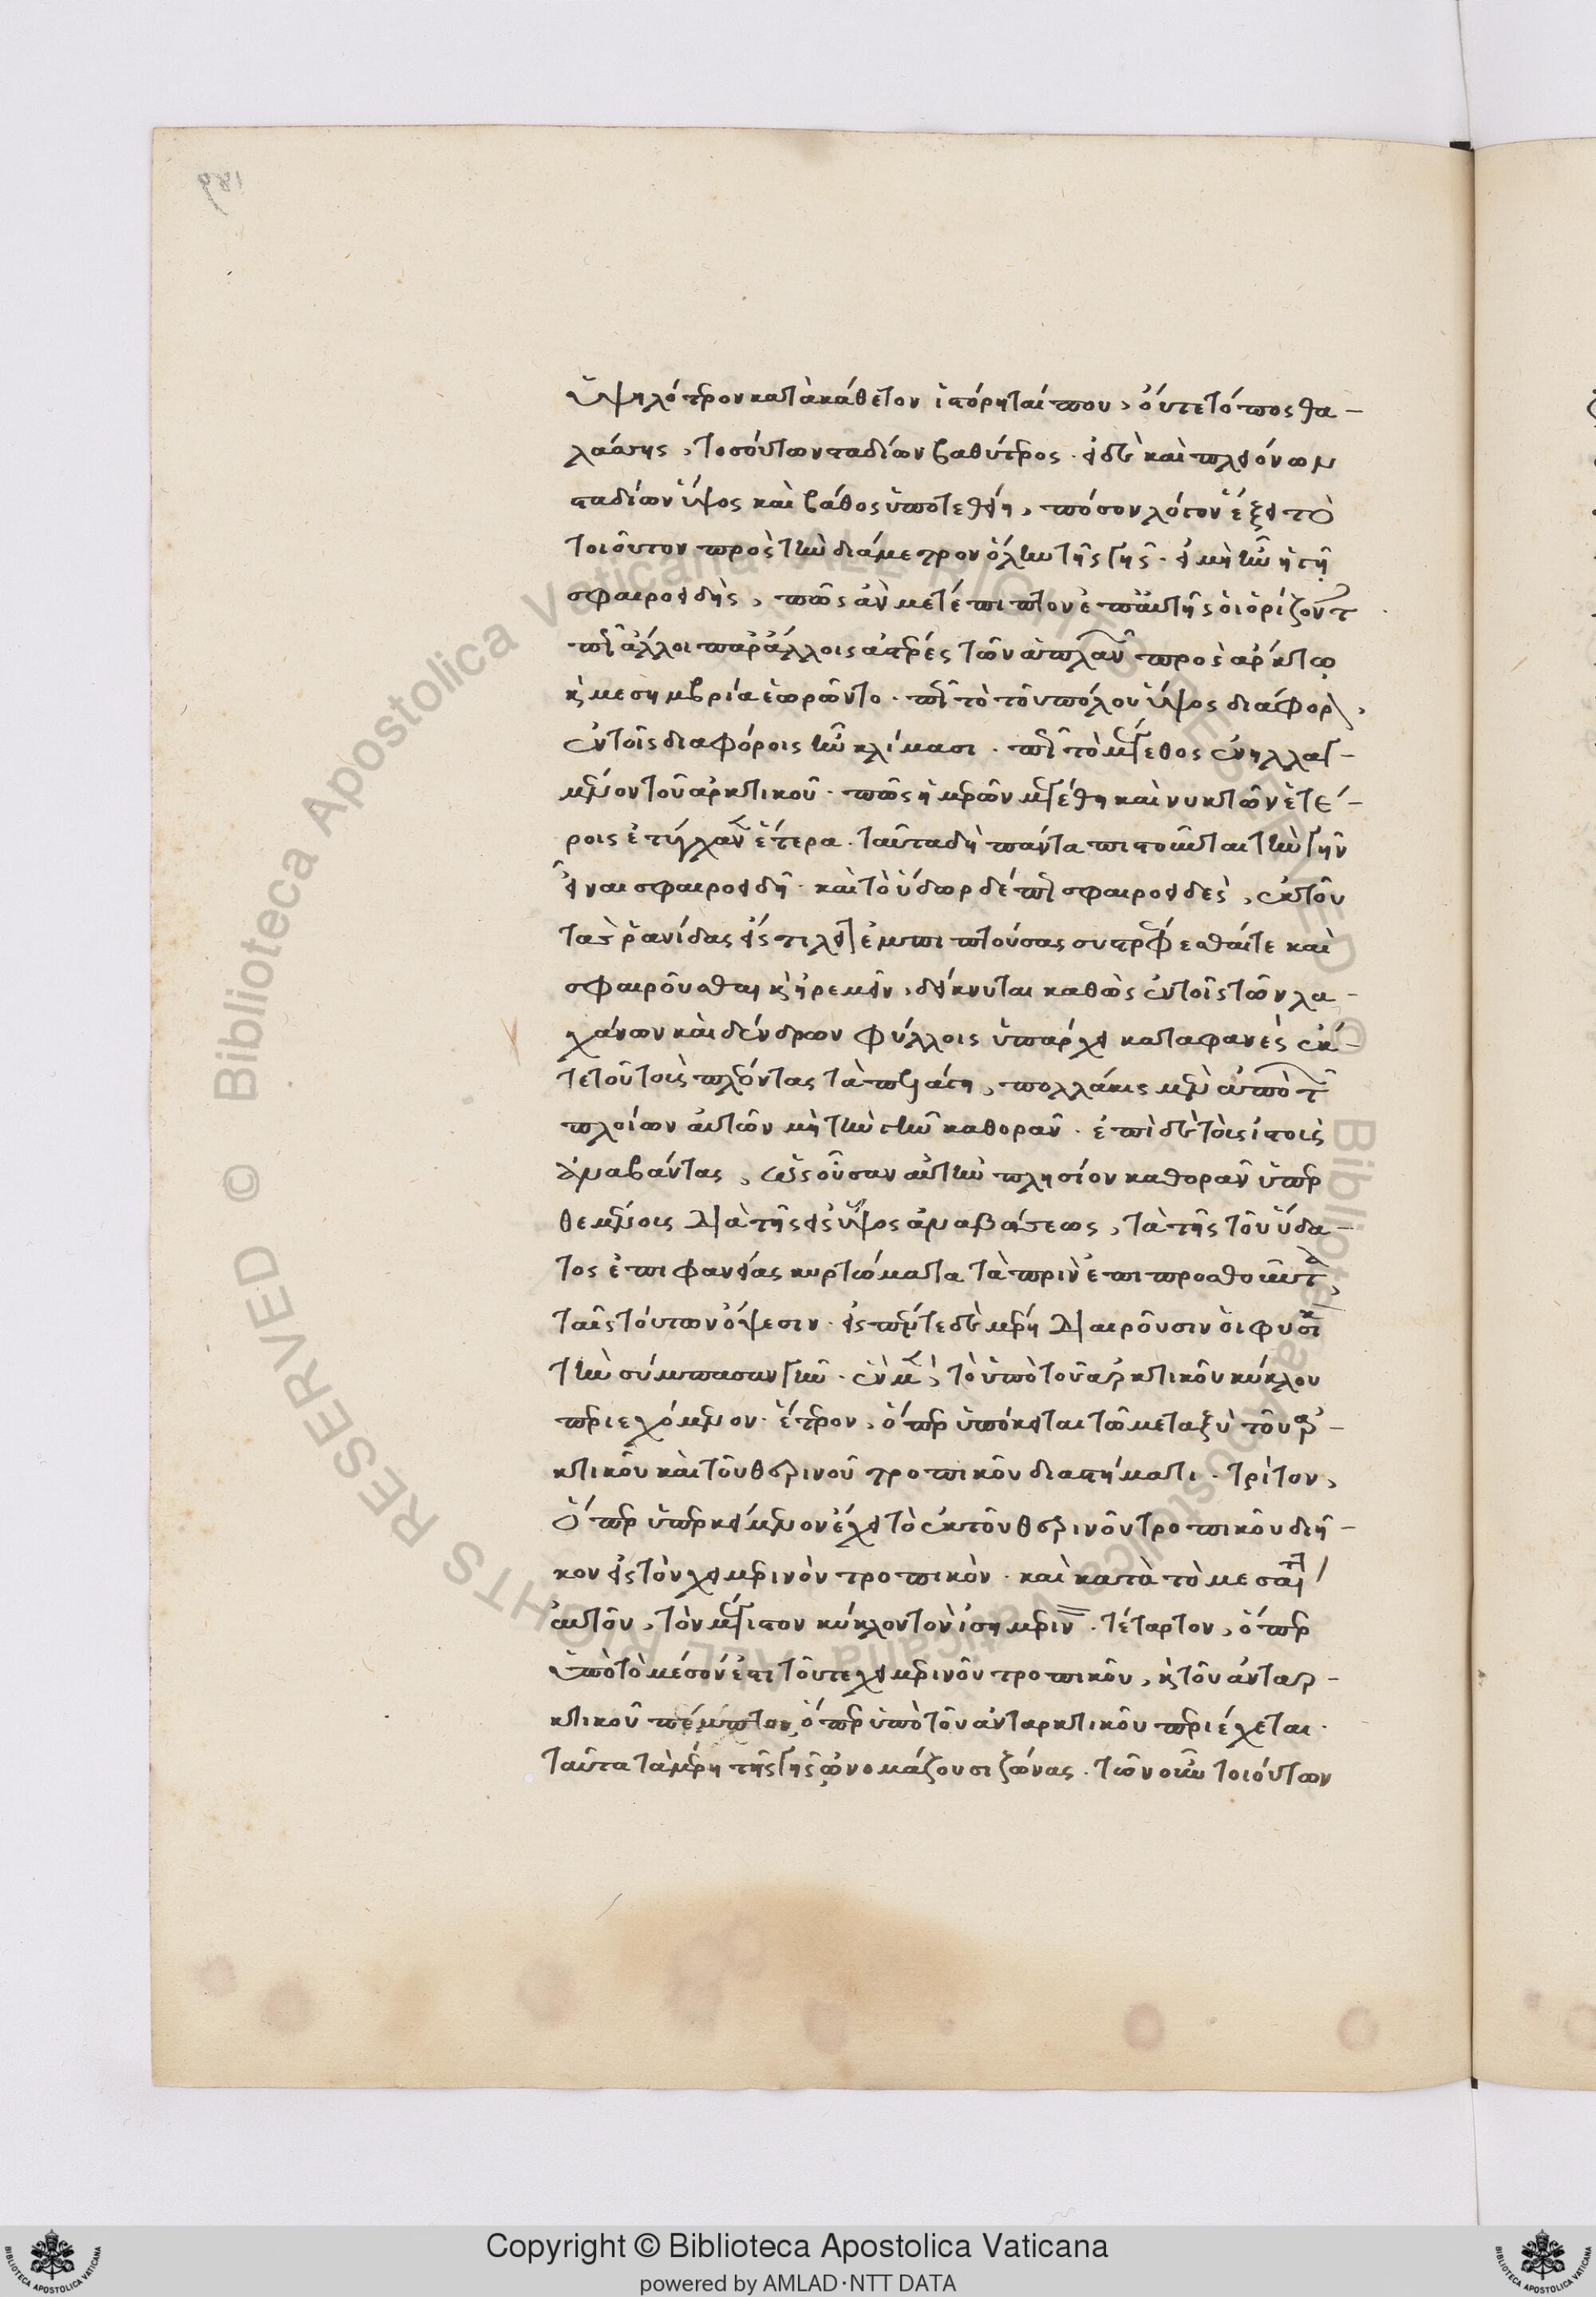 ὑψηλότερον κατὰ κάθετον ἱστόρηταί που, οὔτε τόπος θα-
λάσσης, τοσούτων σταδίων βαθύτερος. εἰ δὲ καὶ πλειόνων
σταδίων ὕψος καὶ βάθος ὑποτεθείη, πόσον λόγον ἕξει τὸ
τοιοῦτον πρὸς τὴν διάμετρον ὅλην τῆς γῆς. εἰ μὴ ἦν ἡ γῆ
σφαιροειδὴς, πῶς ἂν μετέπιπτον ἐπ' αὐτῆς οἱ ὁρίζοντες
πῶς ἄλλοι παρ' ἄλλοις ἀστέρες τῶν ἀπλανῶν πρὸς ἄρκτω
καὶ μεσημβρία ἑωρῶντο. πῶς τὸ τοῦ πόλου ὕψος διάφορον,
ἐν τοῖς διαφόροις ἦν κλίμασι. πῶς τὸ μέγεθος ἐνηλλαγ-
μένον τοῦ ἀρκτικοῦ. πῶς ἡμερῶν μεγέθη καὶ νυκτῶν ἑτέ-
ροις ἐτύγχανεν ἕτερα. ταῦτα δὴ πάντα πιστοῦνται τὴν γῆν
εἶναι σφαιροειδῆ. καὶ τὸ ὕδωρ δέ πως σφαιροειδὲς, ἐκ τοῦ
τὰς ῥανίδας εἴς τι λεῖον ἐμπιπτούσας συστρέφεσθαί τε καὶ
σφαιροῦσθαι καὶ ἠρεμεῖν, δείκνυται καθὼς ἐν τοῖς τῶν λα-
χάνων καὶ δένδρων φύλλοις ὑπάρχει καταφανὲς ἐκ
τε τοῦ τοὺς πλέοντας τὰ πελάγη, πολλάκις μὲν ἀπὸ τῶν
πλοίων αὐτῶν μὴ τὴν γῆν καθορᾶν. ἐπὶ δὲ τοὺς ἱστοὺς
ἀναβάντας, ὡς οὖσαν αὐτὴν πλησίον καθορᾶν ὑπερ
θεμένοις διὰ τῆς εἰς ὕψος ἀναβάσεως, τὰ τῆς τοῦ ὕδα-
τος ἐπιφανείας κυρτώματα τὰ πρὶν ἐπιπροσθοῦντα,
ταῖς τούτων ὄψεσιν. εἰς πέντε δὲ μέρη διαιροῦσιν οἱ φυσικοὶ
τὴν σύμπασαν γῆν. ἓν μὲν, τὸ ὑπὸ τοῦ ἀρκτικοῦ κύκλου
περιεχόμενον. ἕτερον, ὅπερ ὑπόκειται τῶ μεταξὺ τοῦ ἀρ-
κτικοῦ καὶ τοῦ θερινοῦ τροπικοῦ διαστήματι. τρίτον,
ὅπερ ὑπερκείμενον ἔχει τὸ ἐκ τοῦ θερινοῦ τροπικοῦ διῆ-
κον εἰς τὸν χειμερινὸν τροπικὸν. καὶ κατὰ τὸ μεσαίτατον
αὐτοῦ, τὸν μέγιστον κύκλον τὸν ἰσημερινὸν. τέταρτον, ὅπερ
ὑπὸ τὸ μέσον ἐστὶ τοῦ τε χειμερινοῦ τροπικοῦ, καὶ τοῦ ἀνταρ-
κτικοῦ πέμπτον, ὅπερ ὑπὸ τοῦ ἀνταρκτικοῦ περιέχεται.
ταῦτα τὰ μέρη τῆς γῆς ὠνομάζουσι ζώνας. τῶν οὖν τοιούτων
© Biblioteca Apostolica Vaticana ALL RIGHTS RESERVED © Biblioteca Apostolica Vaticana ALL RIGHTS RESERVED
Copyright © Biblioteca Apostolica Vaticana
powered by AMLAD·NTT DATA